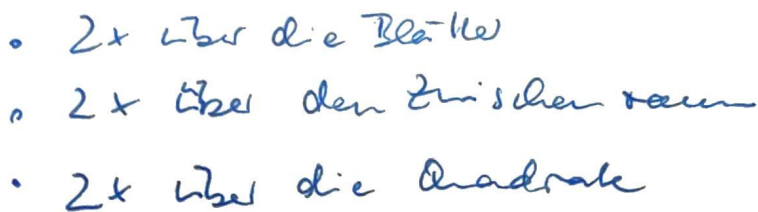 • 2x über die Blätter
• 2x über den Zwischenraum
• 2x über die Quadrate